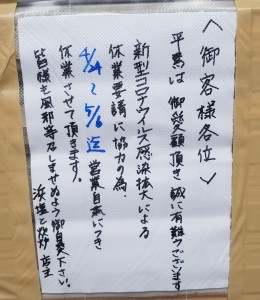 〈御客様各位〉
平素は御愛顧頂き誠に有難うございます
新型コロナウイルス感染拡大による
休業要請に協力の為
4/24～5/6迄営業自粛につき
休業させて頂きます。
皆様も風邪等召しませぬよう御自愛下さい。
店主